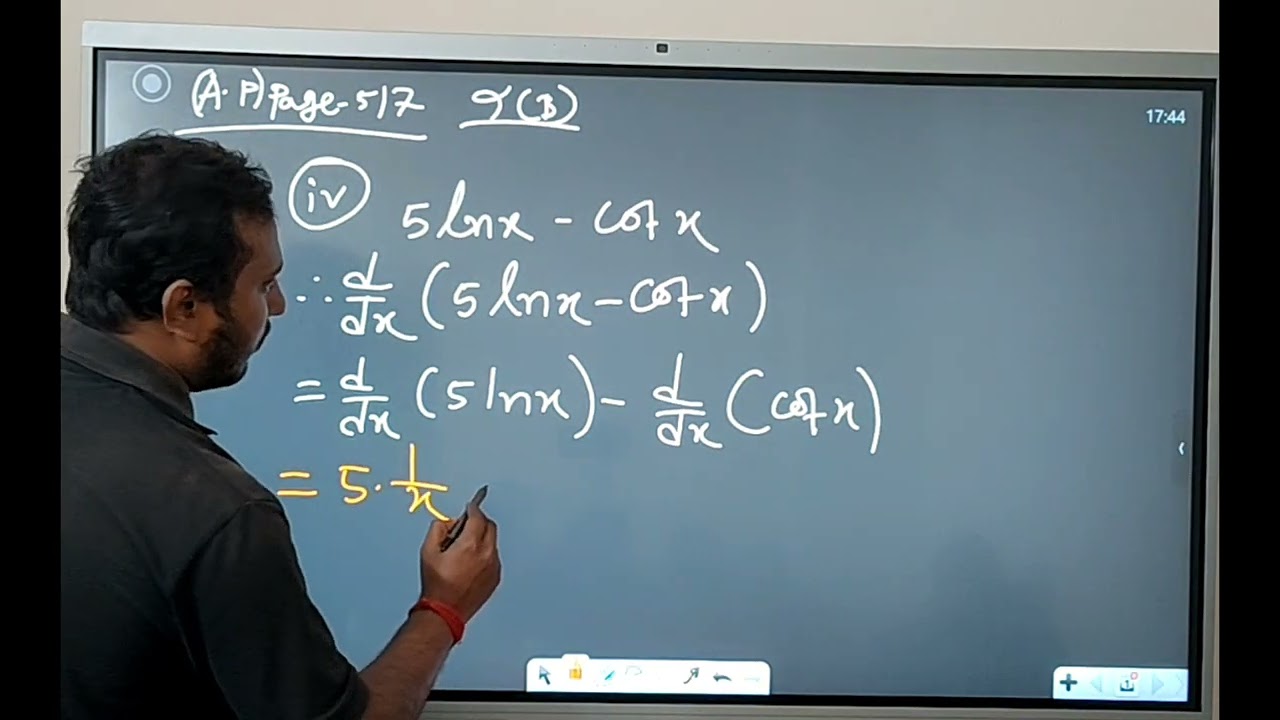 (A.P) Page-517 I(B)
17:44
iv 5 lnx - cot x
∴ d/dx (5 lnx - cot x)
= d/dx (5 lnx) - d/dx (cot x)
= 5. 1/x